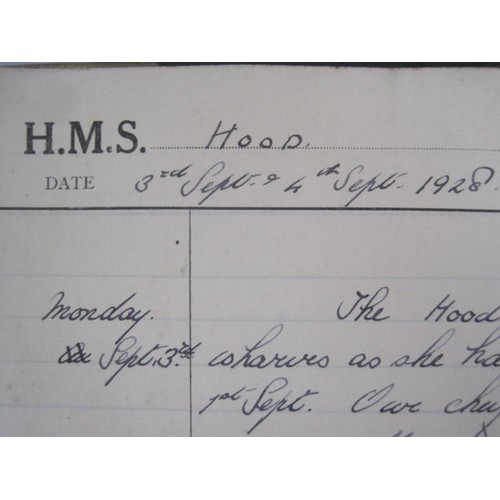 H.M.S. Hood.
DATE 3rd Sept. & 4th Sept. 1928.
Monday. The Hood
Sept. 3rd wharves as she ha
1st Sept. Our chu